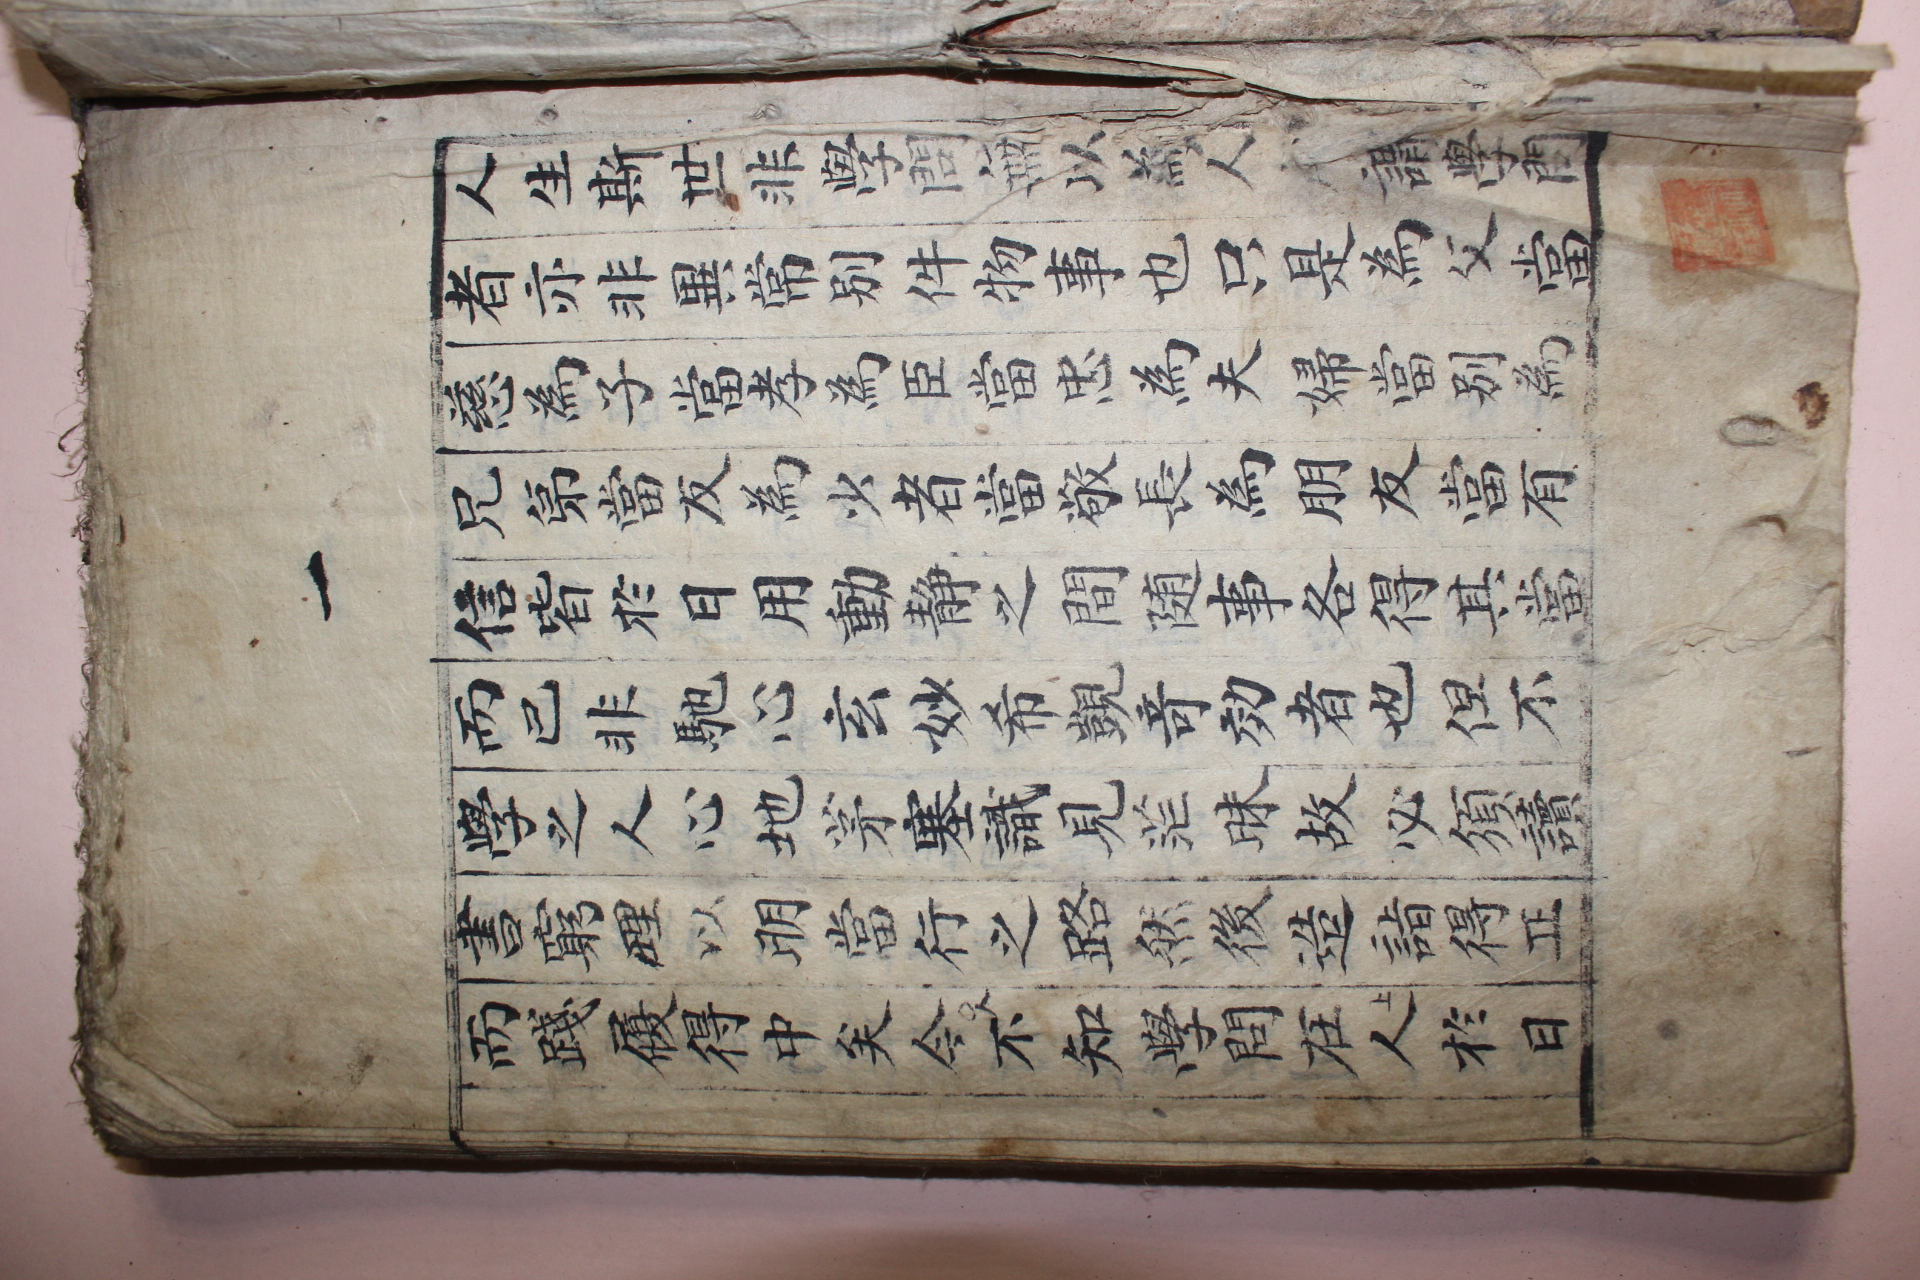 一
人生斯世非學問無以為人謂學問
者亦非異常別件物事也只是為父當
慈為子當孝為臣當忠為夫婦當別為
兄弟當友為少者當敬長為朋友當有
信皆於日用動静之間随事各得其當
而已非馳心玄妙希覬奇効者也但不
學之人心地茅塞識見茫昧故必須讀
書窮理以明當行之路然後造詣得正
而踐履得中矣今人不知學問在人上於日